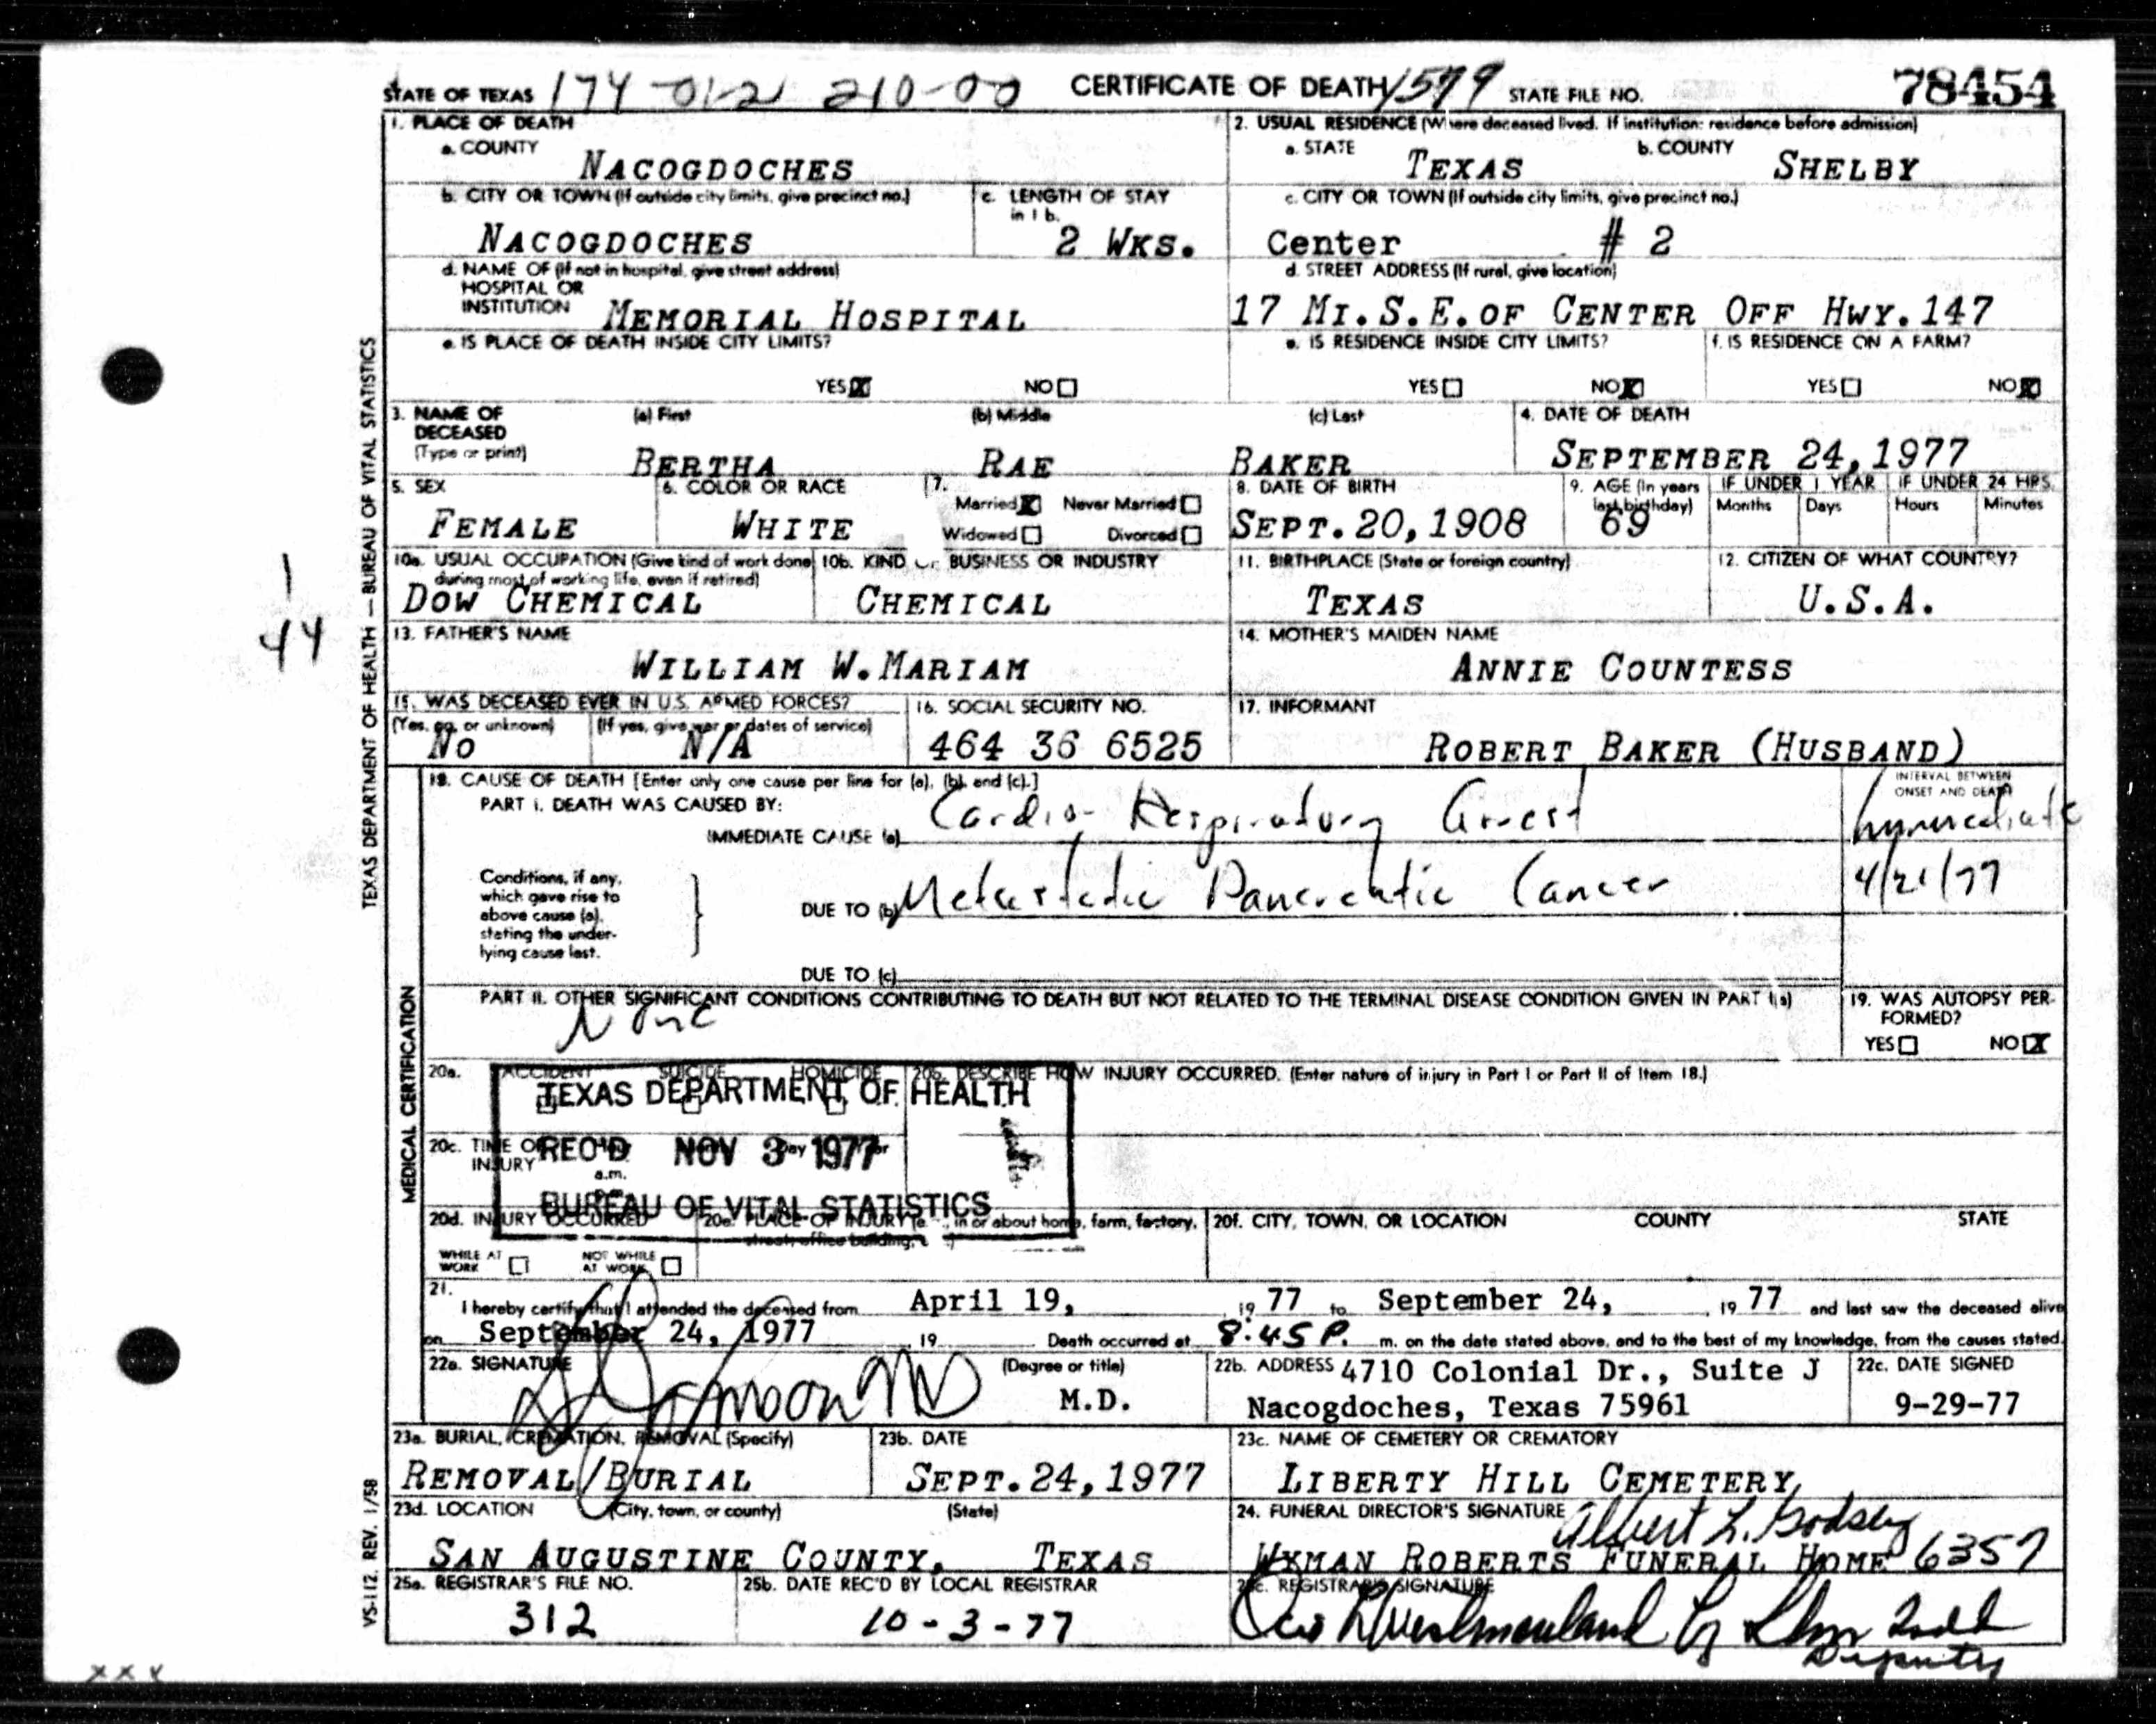 STATE OF TEXAS 174-01-2 210-00 CERTIFICATE OF DEATH 1579 STATE FILE NO. 78454
1. PLACE OF DEATH
a. COUNTY
NACOGDOCHES
2. USUAL RESIDENCE (Where deceased lived. If institution: residence before admission)
a. STATE TEXAS b. COUNTY SHELBY
b. CITY OR TOWN (If outside city limits, give precinct no.)
NACOGDOCHES
c. LENGTH OF STAY in 1 b.
2 WKS.
c. CITY OR TOWN (If outside city limits, give precinct no.)
Center # 2
d. NAME OF (If not in hospital, give street address)
HOSPITAL OR
INSTITUTION MEMORIAL HOSPITAL
d. STREET ADDRESS (If rural, give location)
17 MI.S.E.OF CENTER OFF HWY.147
e. IS PLACE OF DEATH INSIDE CITY LIMITS?
YES X NO
e. IS RESIDENCE INSIDE CITY LIMITS?
YES NO X
f. IS RESIDENCE ON A FARM?
YES NO X
3. NAME OF DECEASED (Type or print)
(a) First (b) Middle (c) Last
BERTHA RAE BAKER
4. DATE OF DEATH
SEPTEMBER 24,1977
5. SEX
FEMALE
6. COLOR OR RACE
WHITE
7.
Married X Never Married
Widowed Divorced
8. DATE OF BIRTH
SEPT.20,1908
9. AGE (In years last birthday)
69
IF UNDER 1 YEAR IF UNDER 24 HRS.
Months Days Hours Minutes
10a. USUAL OCCUPATION (Give kind of work done during most of working life, even if retired)
DOW CHEMICAL
10b. KIND OF BUSINESS OR INDUSTRY
CHEMICAL
11. BIRTHPLACE (State or foreign country)
TEXAS
12. CITIZEN OF WHAT COUNTRY?
U.S.A.
13. FATHER'S NAME
WILLIAM W.MARIAM
14. MOTHER'S MAIDEN NAME
ANNIE COUNTESS
15. WAS DECEASED EVER IN U.S. ARMED FORCES?
(Yes, no, or unknown) (If yes, give war or dates of service)
No N/A
16. SOCIAL SECURITY NO.
464 36 6525
17. INFORMANT
ROBERT BAKER (HUSBAND)
18. CAUSE OF DEATH [Enter only one cause per line for (a), (b), and (c).]
PART I. DEATH WAS CAUSED BY:
IMMEDIATE CAUSE (a) Cardio-Respiratory Arrest
INTERVAL BETWEEN ONSET AND DEATH
Immediate
Conditions, if any, which gave rise to above cause (a), stating the underlying cause last.
DUE TO (b) Metastatic Pancreatic Cancer
4/21/77
DUE TO (c)
PART II. OTHER SIGNIFICANT CONDITIONS CONTRIBUTING TO DEATH BUT NOT RELATED TO THE TERMINAL DISEASE CONDITION GIVEN IN PART I(a)
None
19. WAS AUTOPSY PERFORMED?
YES NO X
20a. ACCIDENT SUICIDE HOMICIDE
20b. DESCRIBE HOW INJURY OCCURRED. (Enter nature of injury in Part I or Part II of Item 18.)
TEXAS DEPARTMENT OF HEALTH
REC'D NOV 3 1977
BUREAU OF VITAL STATISTICS
20c. TIME OF INJURY
a.m.
20d. INJURY OCCURRED
WHILE AT WORK NOT WHILE AT WORK
20e. PLACE OF INJURY (e. , in or about home, farm, factory, street, office building, )
20f. CITY, TOWN, OR LOCATION COUNTY STATE
21.
I hereby certify that I attended the deceased from April 19, 19 77 to September 24, 19 77 and last saw the deceased alive
on September 24, 1977 19 Death occurred at 8:45 P. m. on the date stated above, and to the best of my knowledge, from the causes stated.
22a. SIGNATURE (Degree or title)
M.D.
22b. ADDRESS 4710 Colonial Dr., Suite J
Nacogdoches, Texas 75961
22c. DATE SIGNED
9-29-77
23a. BURIAL, CREMATION, REMOVAL (Specify)
REMOVAL/BURIAL
23b. DATE
SEPT.24,1977
23c. NAME OF CEMETERY OR CREMATORY
LIBERTY HILL CEMETERY
23d. LOCATION (City, town, or county) (State)
SAN AUGUSTINE COUNTY, TEXAS
24. FUNERAL DIRECTOR'S SIGNATURE Albert L. Godsey
WYMAN ROBERTS FUNERAL HOME 6357
25a. REGISTRAR'S FILE NO.
312
25b. DATE REC'D BY LOCAL REGISTRAR
10-3-77
25c. REGISTRAR'S SIGNATURE
Deputy
TEXAS DEPARTMENT OF HEALTH — BUREAU OF VITAL STATISTICS
MEDICAL CERTIFICATION
VS-112, REV. 1/58
1
44
xxx